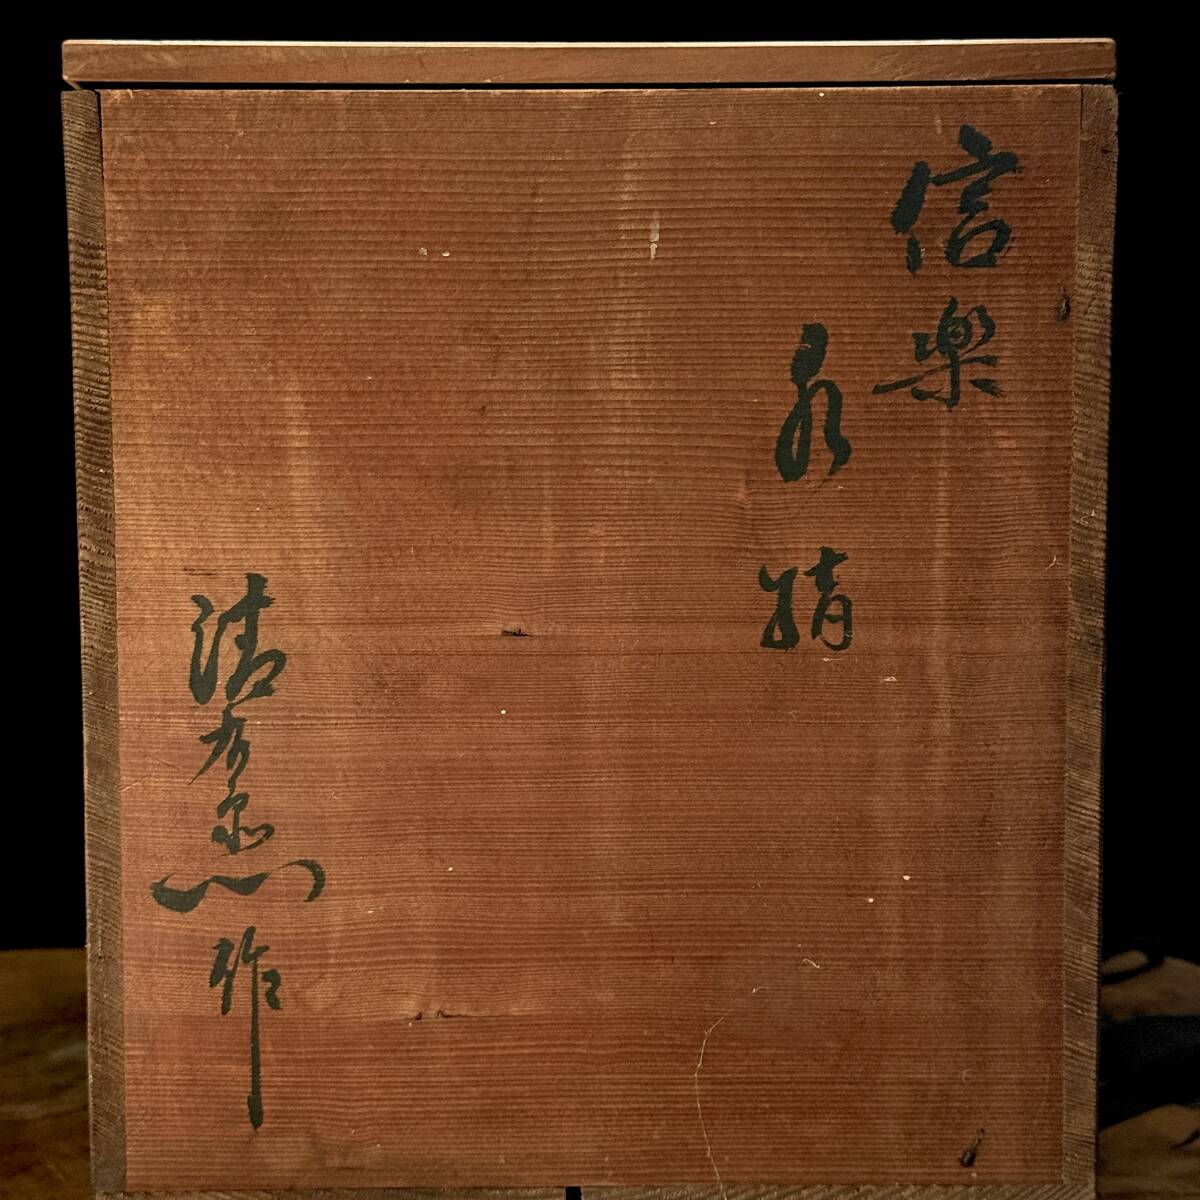 信楽
水指
清右衛門作